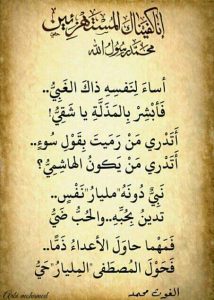 إنا كفيناك المستهزئين
محمد رسول الله
أساءَ لِنَفسِهِ ذاكَ الغَبِيُّ..
فَأَبْشِرْ بِالمَذَلَّةِ يا شَقِيُّ!
أَتَدْري مَنْ رَمَيتَ بِقَوْلِ سُوءٍ..
أَتَدْري مَنْ يَكونُ الهاشِمِيُّ؟
نَبِيٌّ دُونَهُ "مليارُ" نَفْسٍ..
تَدينُ بِحُبِّهِ..والحُبُّ ضَيُّ
فَمَهْما حاوَلَ الأَعداءُ ذَمًّا..
فَحَوْلَ المُصطَفى "المِليارُ" حَيُّ
الغوث محمد
Arbi mohamed